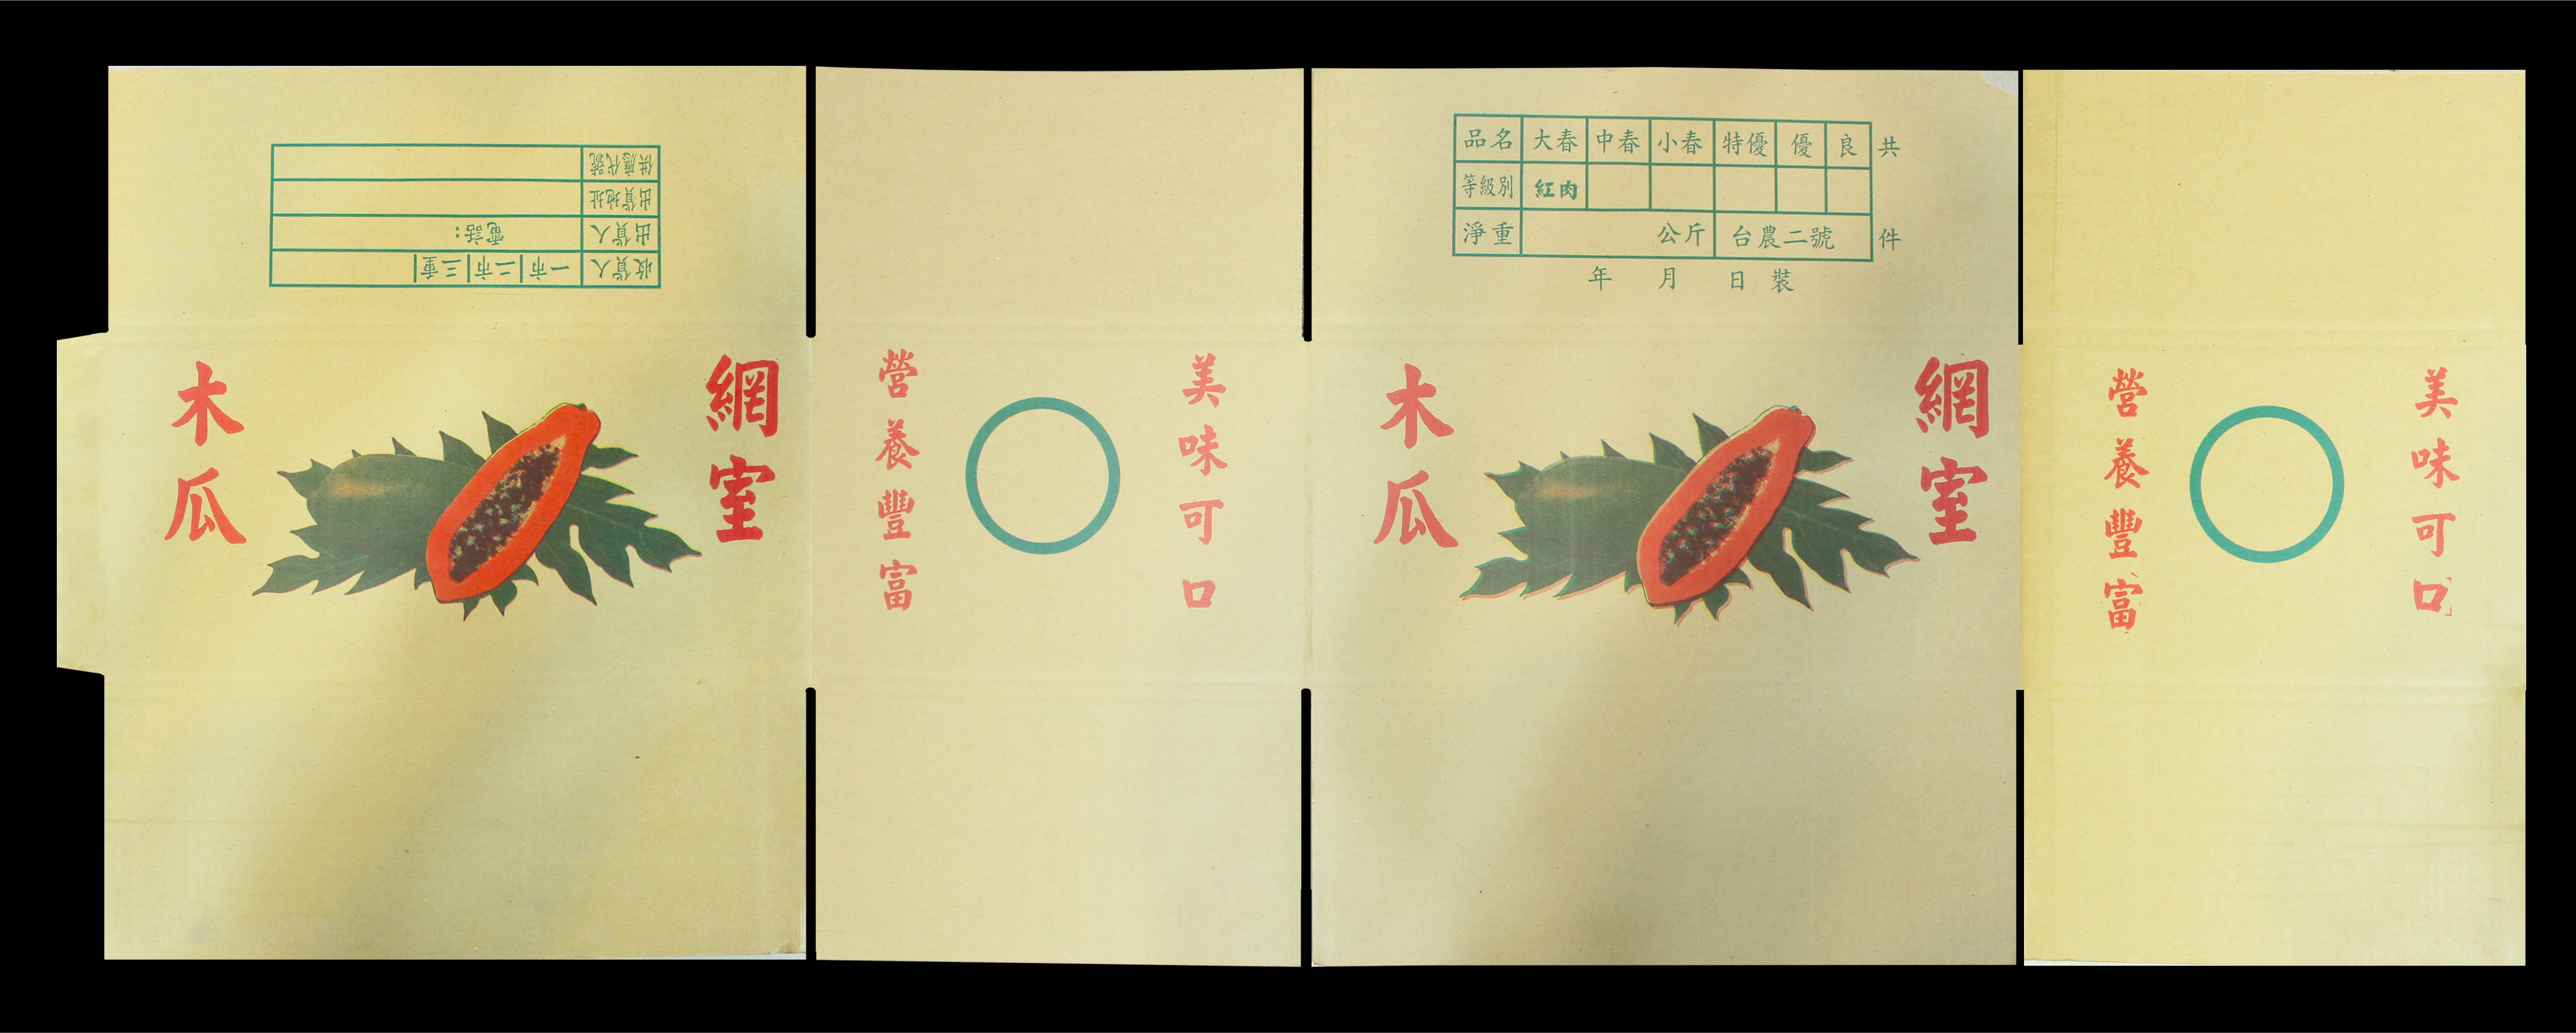 收貨人 一市 二市 三重
出貨人 電話:
出貨地址
供應代號
網室
木瓜
美味可口
營養豐富
品名 大春 中春 小春 特優 優 良 共
等級別 紅肉
淨重 公斤 台農二號 件
年 月 日 裝
網室
木瓜
美味可口
營養豐富